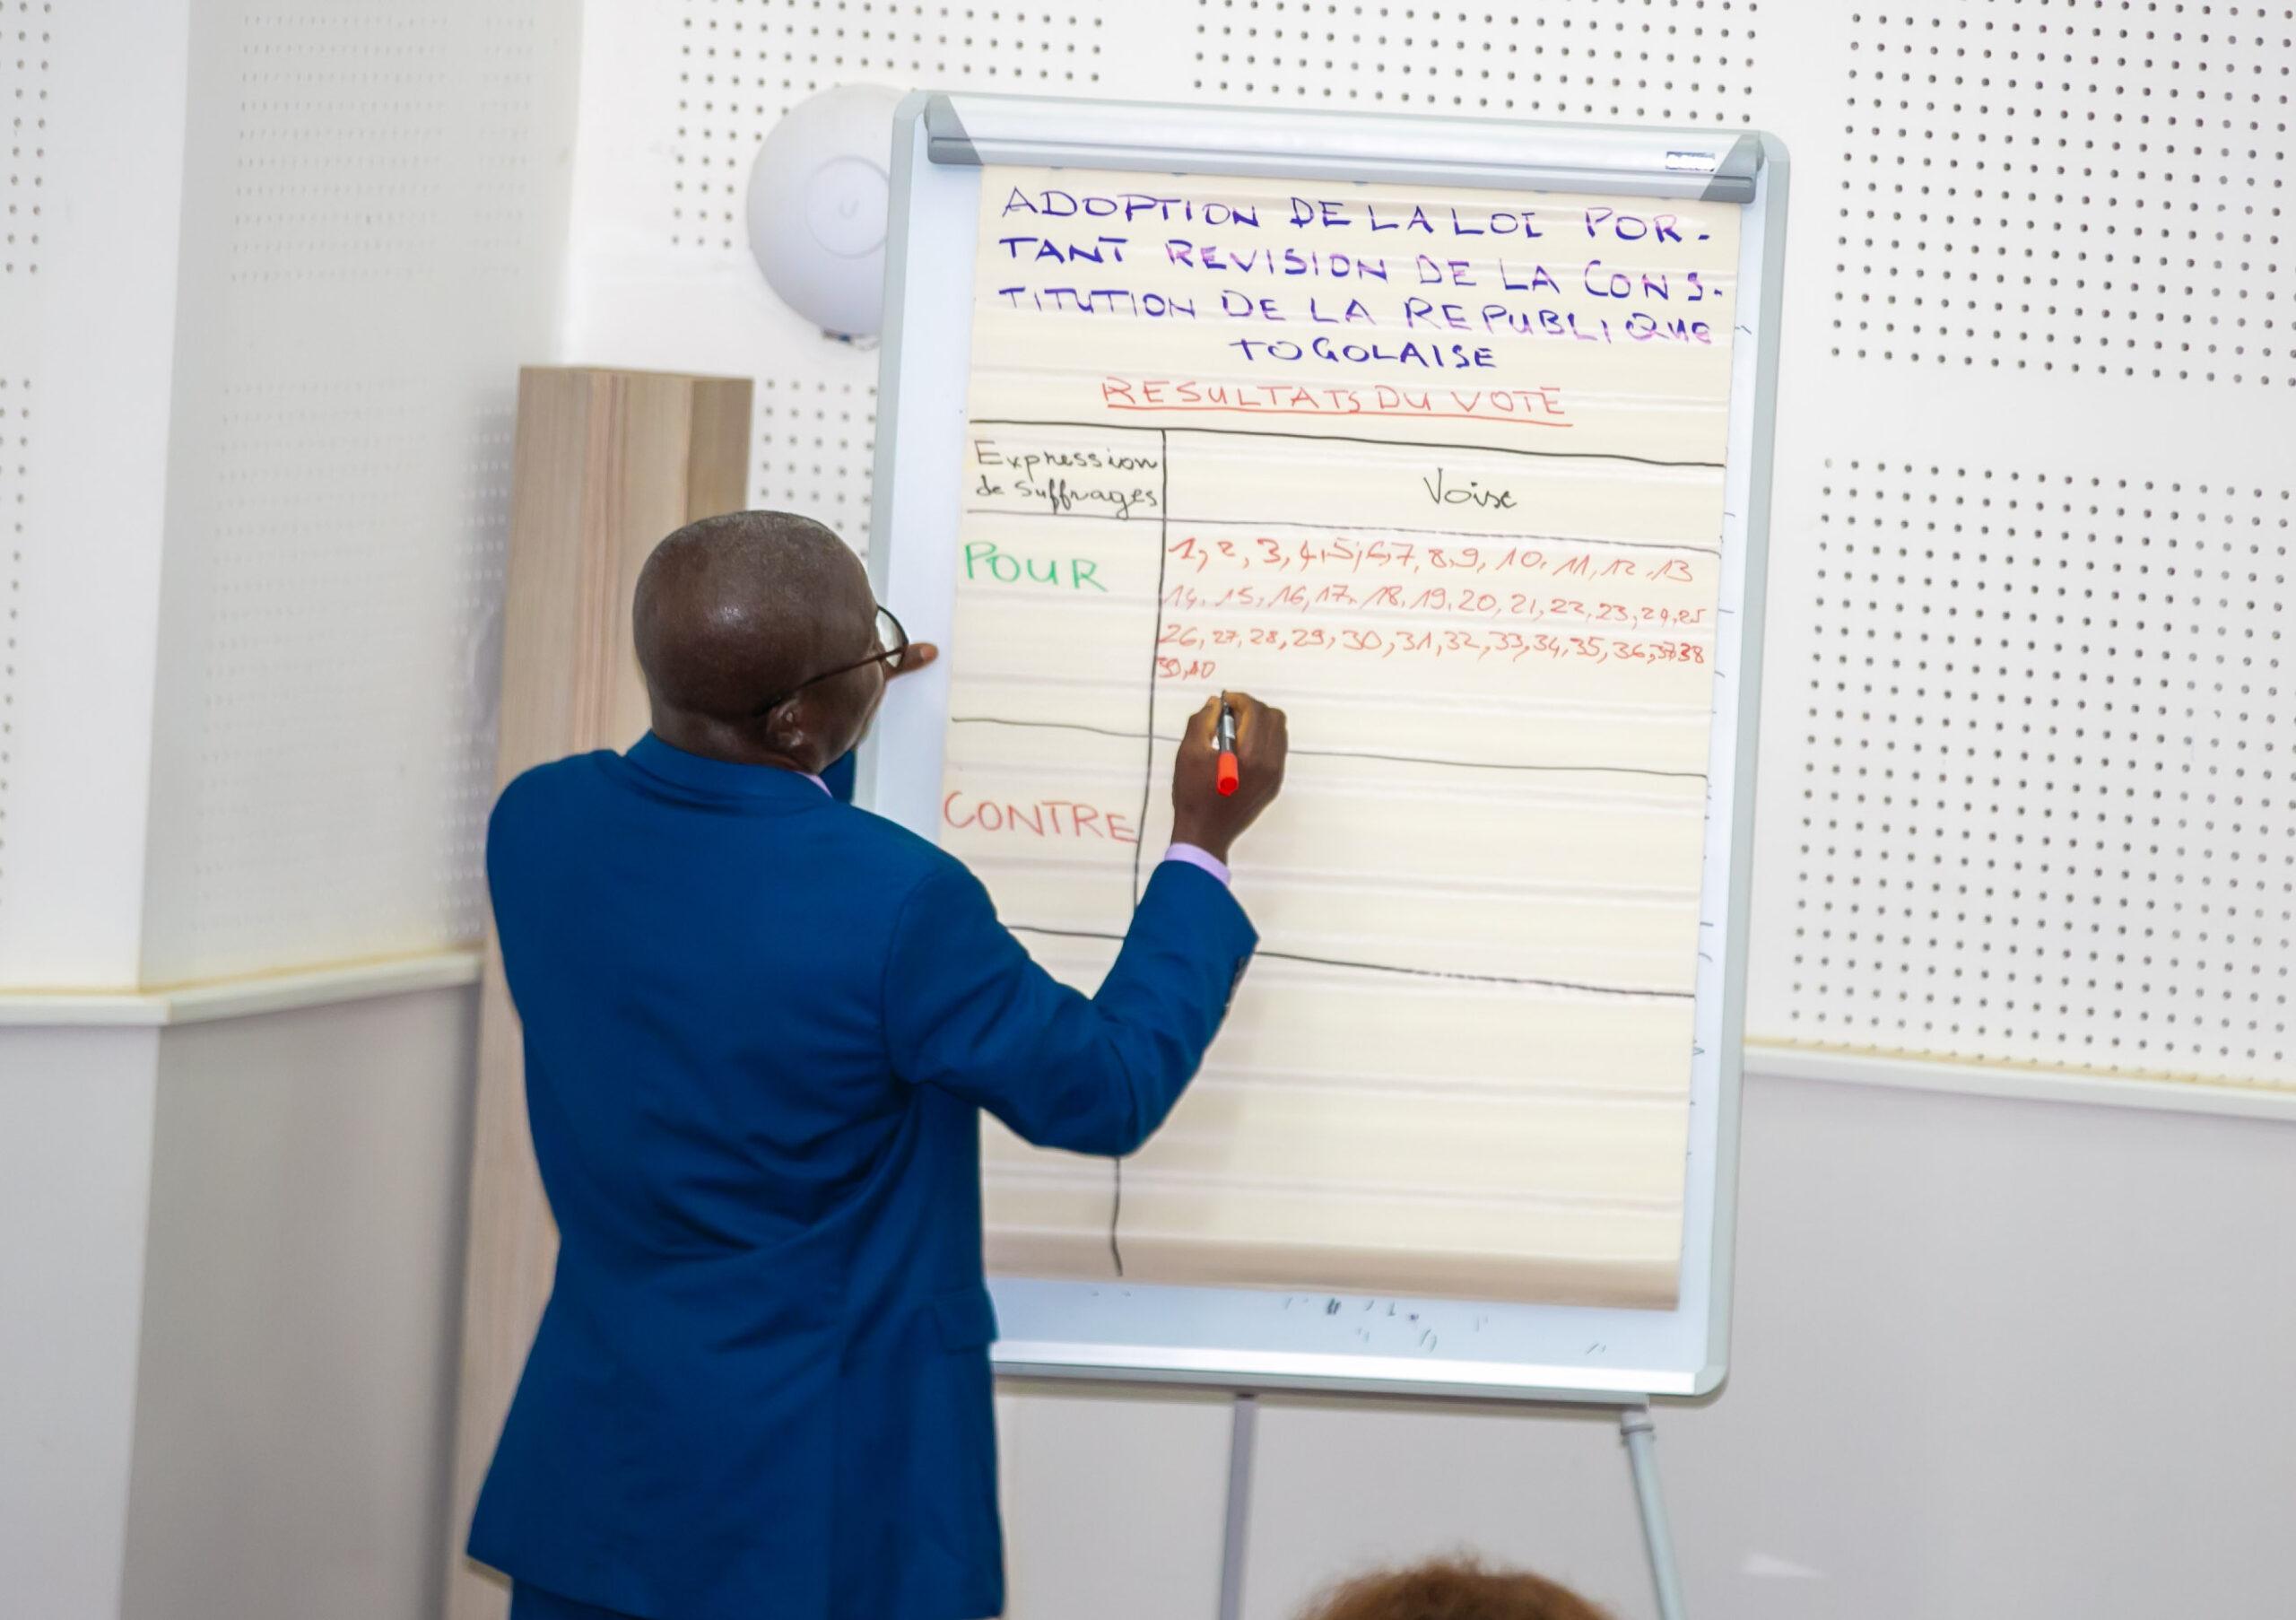 ADOPTION DE LA LOI POR-
TANT REVISION DE LA CONS-
TITUTION DE LA REPUBLIQUE
TOGOLAISE
RESULTATS DU VOTE
Expression
de Suffrages
Voix
POUR
1, 2, 3, 4, 5, 6, 7, 8, 9, 10, 11, 12, 13
14, 15, 16, 17, 18, 19, 20, 21, 22, 23, 24, 25
26, 27, 28, 29, 30, 31, 32, 33, 34, 35, 36, 37 38
39, 40
CONTRE